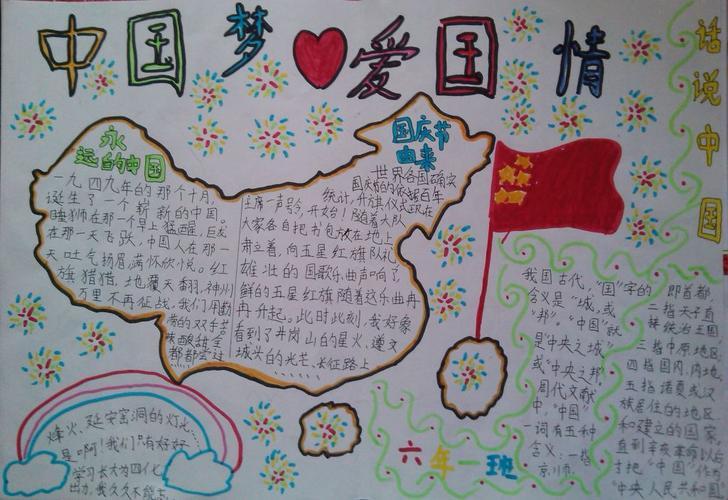 中国梦爱国情
话说中国
永
远的中国
一九四九年的那个十月，
诞生了一个崭新的中国。
睡狮在那一个早上猛醒，巨龙
在那一天飞跃，中国人在那一
天吐气扬眉，满怀欣悦。红
旗猎猎，地覆天翻，神州
万里不再征战。我们用勤
劳的双手
酸甜
都都
国庆节
由来
世界各国确实
国庆的
统计，开旗仪式现在
主席一声号令，开始！随着大队
大家各自把书包放在地上
肃立着，向五星红旗队礼
雄壮的国歌乐曲声响了，
鲜的五星红旗随着这乐曲冉
冉升起。此时此刻，我好象
看到了井岗山的星火，遵义
城头的光芒，长征路上
烽火，延安窑洞的灯光
是啊！我们有好好
学习长大为四化
出力，我久久不能忘
我国古代，“国”字的
含义是“城，或
邦”。“中国”就
是“中央之城”
或“中央之邦”
周代文献
中，“中国”
一词有五种
含义：一指
京师
即首都，
二指天子直
接统治王国
三指中原地区
四指国内，内地
五指诸夏或汉
族居住的地区
和建立的国家
直到辛亥革命以后
才把“中国”作为
“中央人民共和国
六年一班